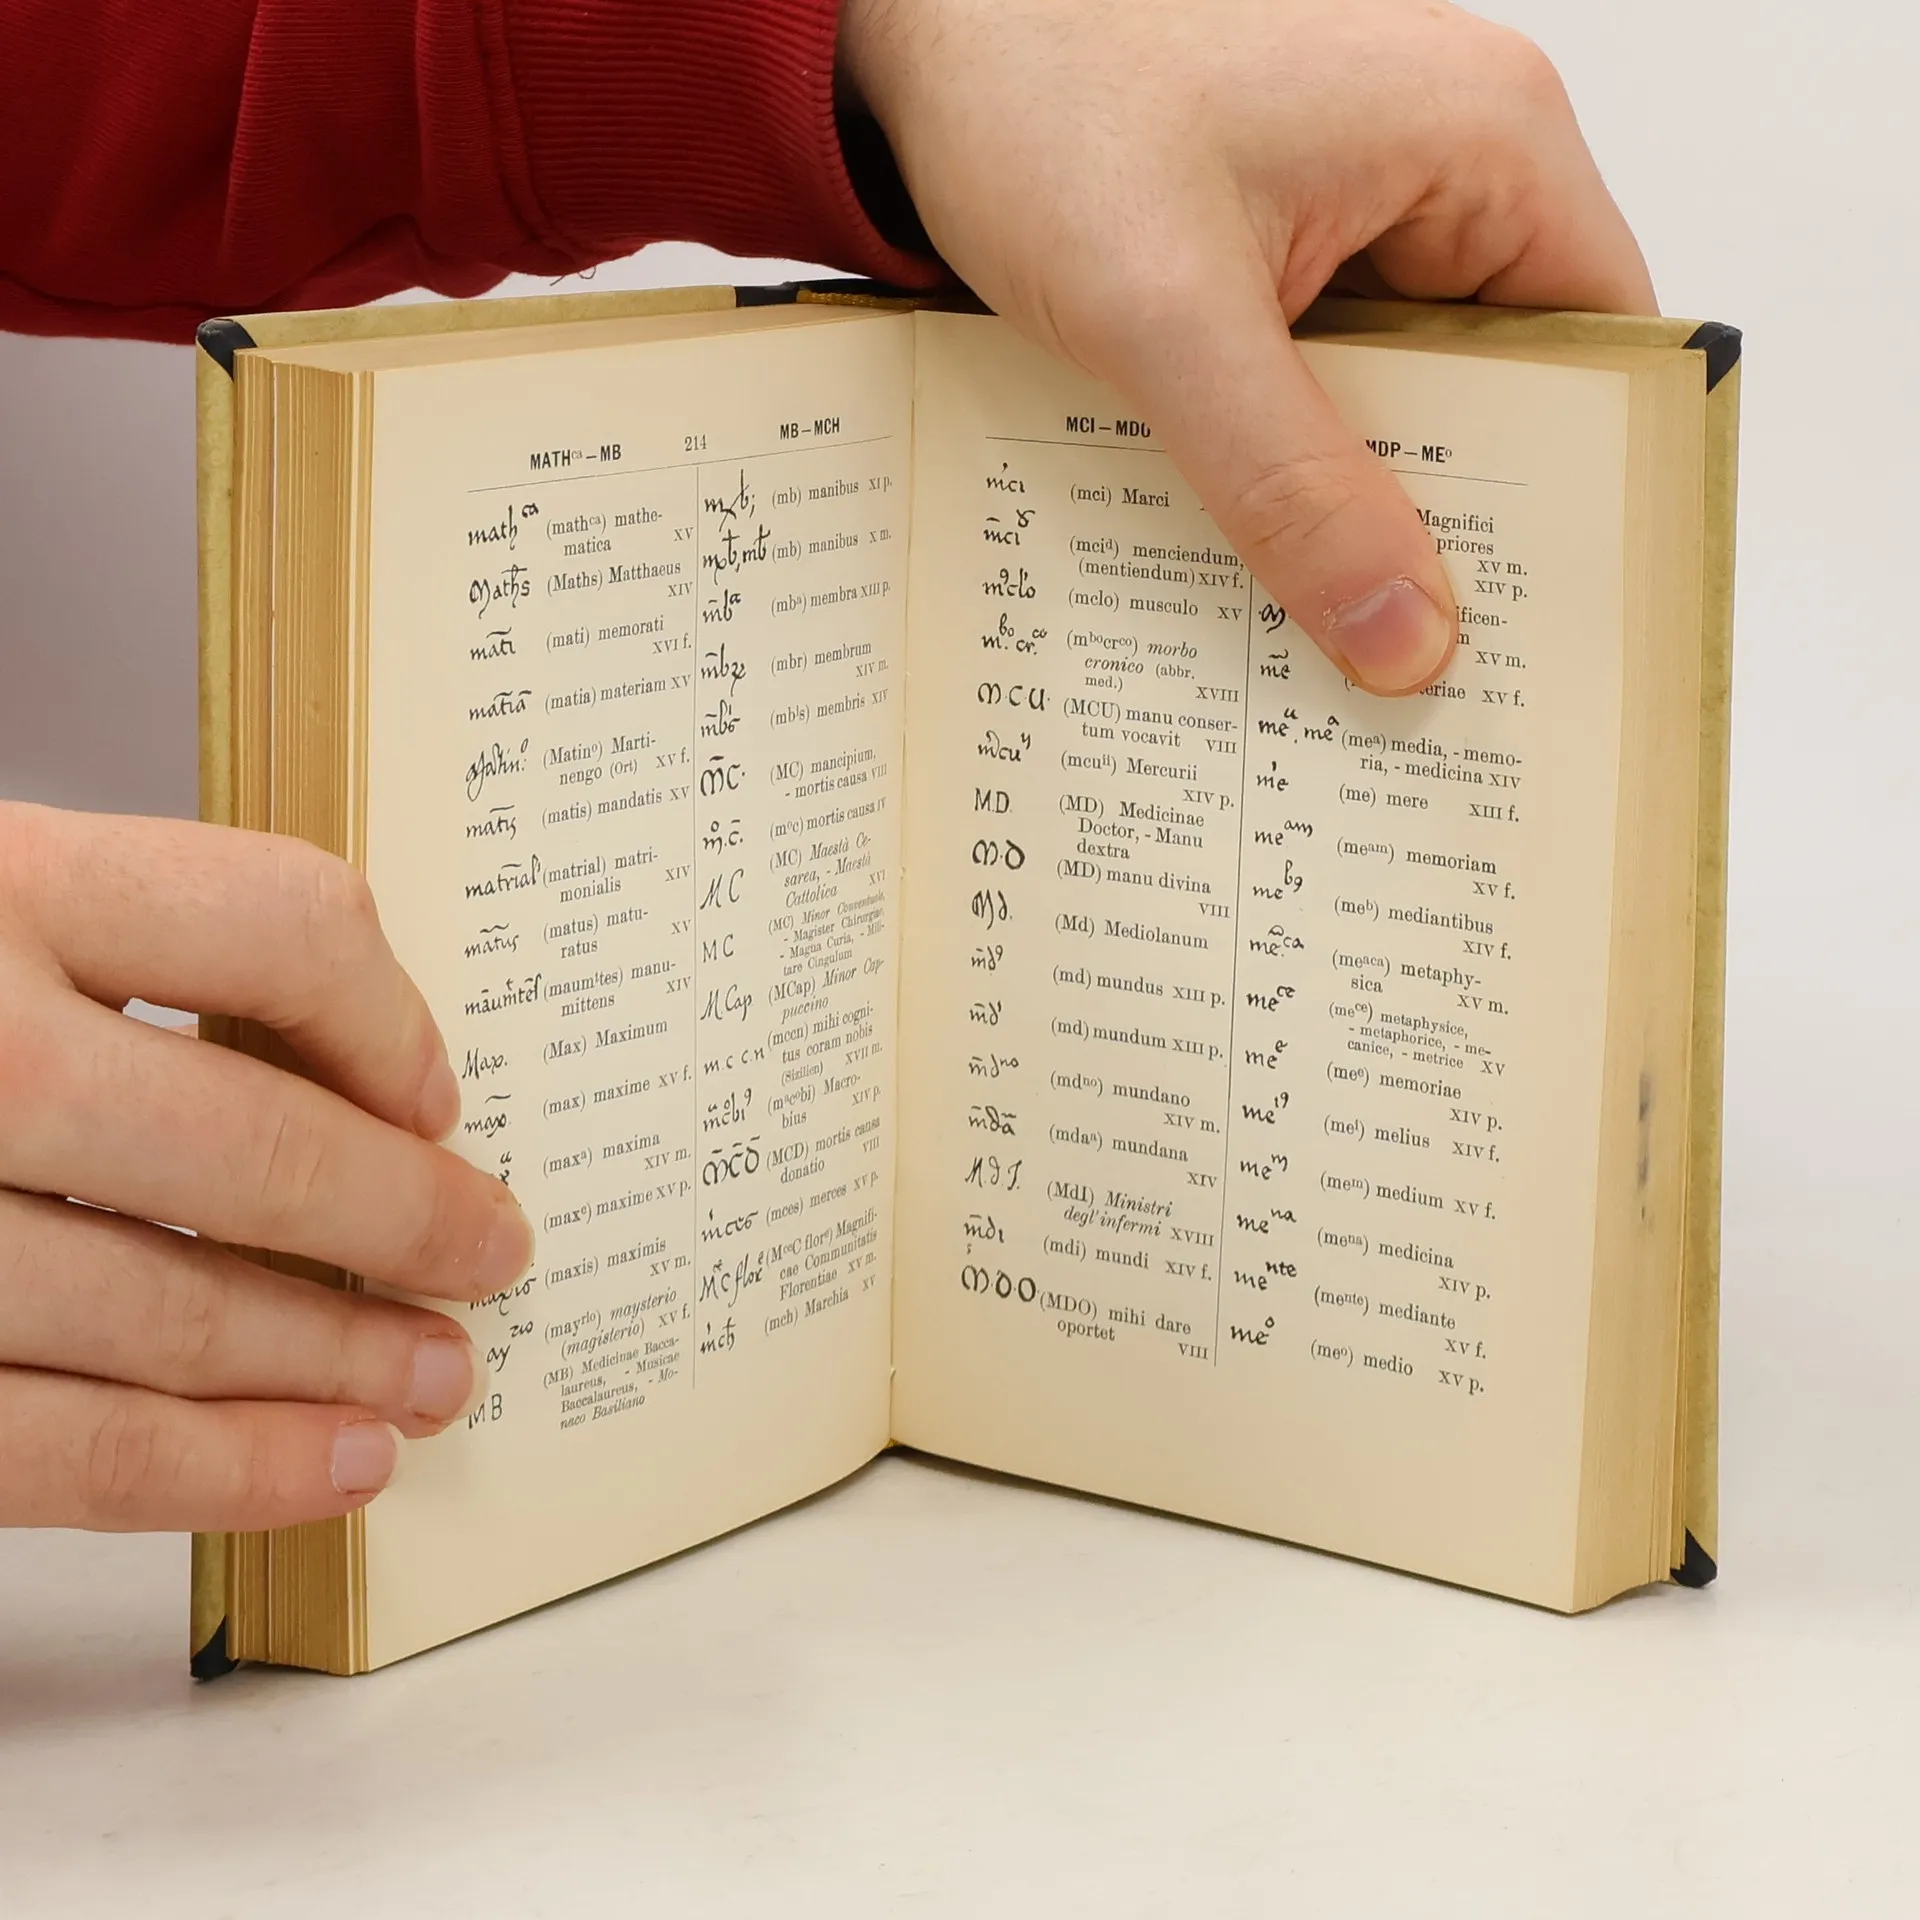 MATHca – MB
214
MB – MCH
mathca (mathca) mathe-
matica XV
Maths (Maths) Matthaeus
XIV
mati (mati) memorati
XVI f.
matia (matia) materiam XV
(Matino) Marti-
nengo (Ort) XV f.
matis (matis) mandatis XV
matrial (matrial) matri-
monialis XIV
matus (matus) matu-
ratus XV
(maumtes) manu-
mittens XIV
Max. (Max) Maximum
max (max) maxime XV f.
(maxa) maxima
XIV m.
(maxe) maxime XV p.
(maxis) maximis
XV m.
(mayrio) maysterio
(magisterio) XV f.
MB (MB) Medicinae Bacca-
laureus, - Musicae
Baccalaureus, - Mo-
naco Basiliano
(mb) manibus XI p.
(mb) manibus X m.
(mba) membra XIII p.
(mbr) membrum
XIV m.
(mbis) membris XIV
MC (MC) mancipium,
- mortis causa VIII
m.c. (moc) mortis causa IV
MC (MC) Maestà Ce-
sarea, - Maestà
Cattolica XVI
MC (MC) Minor Conventuale,
- Magister Chirurgiae,
- Magna Curia, - Mili-
tare Cingulum
M.Cap. (MCap) Minor Cap-
puccino
m.c c.n (mccn) mihi cogni-
tus coram nobis
(Sizilien) XVII m.
(macobi) Macro-
bius XIV p.
MCD (MCD) mortis causa
donatio VIII
(mces) merces XV p.
(MceC flore) Magnifi-
cae Communitatis
Florentiae XV m.
mch (mch) Marchia XV
MCI – MDO
MDP – MEo
mci (mci) Marci
(mcid) menciendum,
(mentiendum) XIV f.
(mclo) musculo XV
m.bo cr.co (mbocrco) morbo
cronico (abbr.
med.) XVIII
M·C·U· (MCU) manu conser-
tum vocavit VIII
(mcuii) Mercurii
XIV p.
M.D. (MD) Medicinae
Doctor, - Manu
dextra
M·D (MD) manu divina
VIII
Md. (Md) Mediolanum
(md) mundus XIII p.
(md) mundum XIII p.
(mdno) mundano
XIV m.
(mdaa) mundana
XIV
M.d.I. (MdI) Ministri
degl'infermi XVIII
(mdi) mundi XIV f.
M·D·O (MDO) mihi dare
oportet VIII
Magnifici
priores
XV m.
XIV p.
ificen-
m
XV m.
me eriae XV f.
mea, mea (mea) media, - memo-
ria, - medicina XIV
me (me) mere XIII f.
meam (meam) memoriam
XV f.
(meb) mediantibus
XIV f.
(meaca) metaphy-
sica XV m.
mece (mece) metaphysice,
- metaphorice, - me-
canice, - metrice XV
mee (mee) memoriae
XIV p.
(mei) melius XIV f.
mem (mem) medium XV f.
mena (mena) medicina
XIV p.
mente (mente) mediante
XV f.
meo (meo) medio XV p.